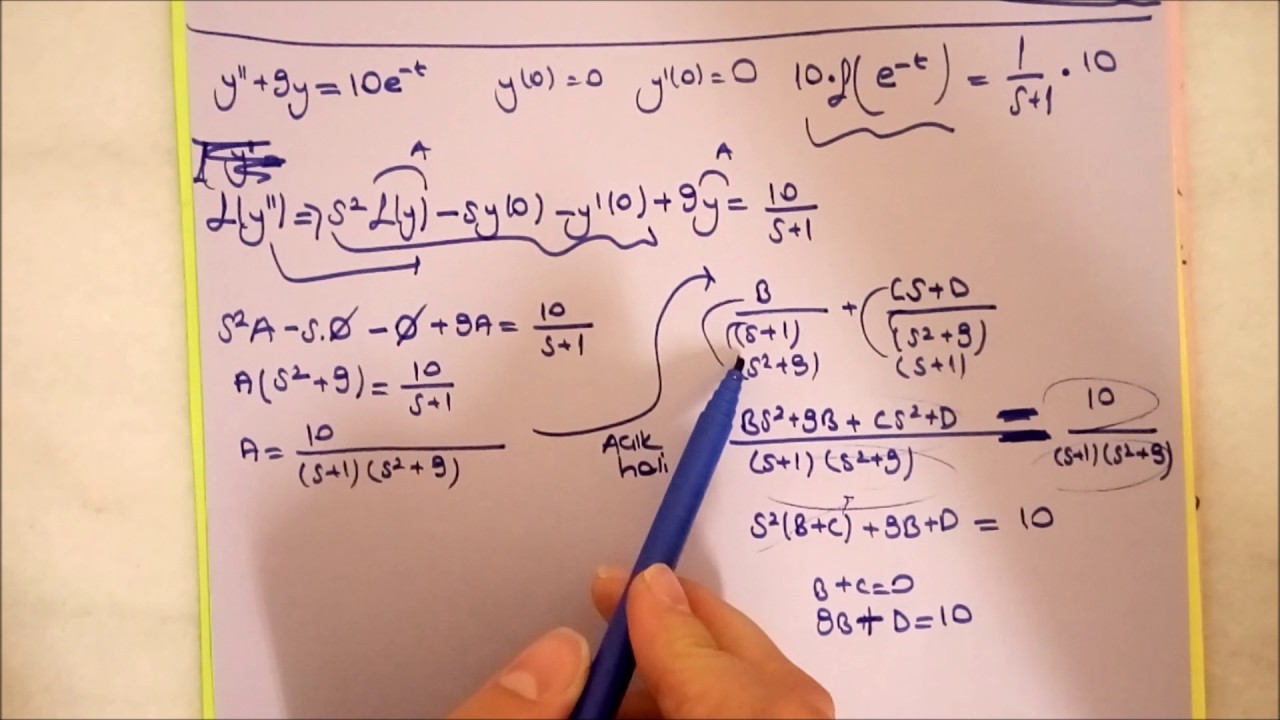 y''+9y=10e⁻ᵗ y(0)=0 y'(0)=0 10·ℒ(e⁻ᵗ) = 1/(s+1) · 10
A A
ℒ(y'')⇒ s²ℒ(y) - sy(0) - y'(0) + 9y = 10/(s+1)
s²A - s.0 - 0 + 9A = 10/(s+1)
A(s²+9) = 10/(s+1)
A = 10/((s+1)(s²+9))
Acık
hali
B/(s+1) + (Cs+D)/(s²+9)
(s²+9) (s+1)
(Bs²+9B + Cs²+D)/((s+1)(s²+9)) = 10/((s+1)(s²+9))
s²(B+C) + 9B+D = 10
B+C=0
9B+D=10